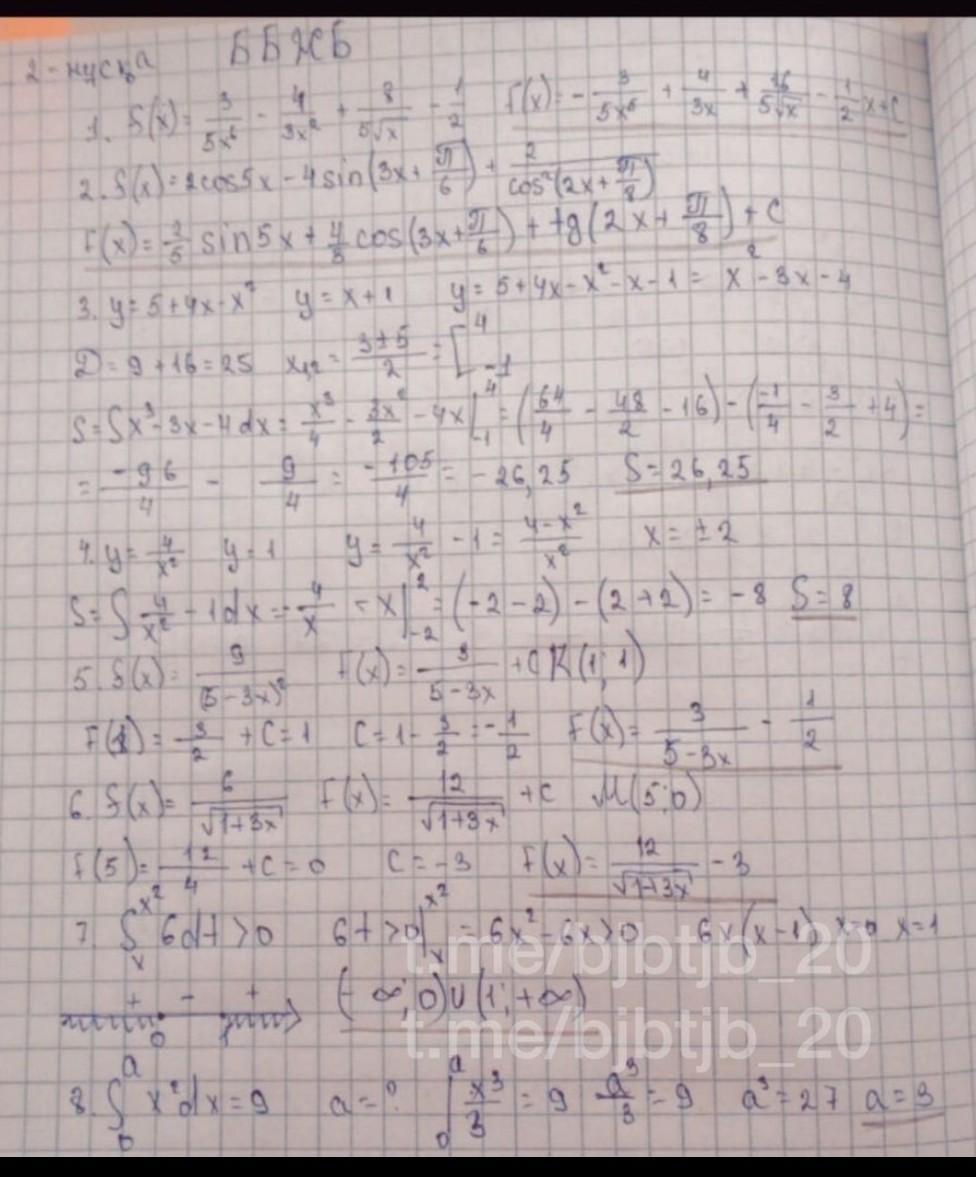 2-нұсқа ББЖБ
1. f(x) = 3/5x⁶ - 4/3x² + 8/5√x - 1/2 F(x) = -3/5x⁵ + 4/3x + 16/5√x - 1/2 x + C
2. f(x) = 2cos5x - 4sin(3x + π/6) + 2/cos²(2x + π/8)
F(x) = 2/5 sin5x + 4/3 cos(3x + π/6) + tg(2x + π/8) + C
3. y = 5 + 4x - x² y = x + 1 y = 5 + 4x - x² - x - 1 = x² - 3x - 4
D = 9 + 16 = 25 x₁,₂ = 3±5/2 = [4 -1
S = ∫x³ - 3x - 4dx = x³/4 - 3x²/2 - 4x|₋₁⁴ = (64/4 - 48/2 - 16) - (-1/4 - 3/2 + 4) =
= -96/4 - 9/4 = -105/4 = -26,25 S = 26,25
4. y = 4/x² y = 1 y = 4/x² - 1 = 4-x²/x² x = ±2
S = ∫ 4/x² - 1dx = -4/x - x|₋₂² = (-2-2) - (2+2) = -8 S = 8
5. f(x) = 9/(5-3x)² F(x) = 3/5-3x + C K(1; 1)
F(1) = 3/2 + C = 1 C = 1 - 3/2 = -1/2 F(x) = 3/5-3x - 1/2
6. f(x) = 6/√1+3x F(x) = 12/√1+3x + C M(5; 0)
F(5) = 12/4 + C = 0 C = -3 F(x) = 12/√1+3x - 3
7. ∫ₓˣ² 6dt > 0 6t > 0|ₓˣ² = 6x² - 6x > 0 6x(x-1) x=0 x=1
t.me/bjbtjb_20
+ - + 0 (-∞; 0)∪(1; +∞)
t.me/bjbtjb_20
8. ∫₀ᵃ x²dx = 9 a = ? |₀ᵃ x³/3 = 9 a³/3 = 9 a³ = 27 a = 3